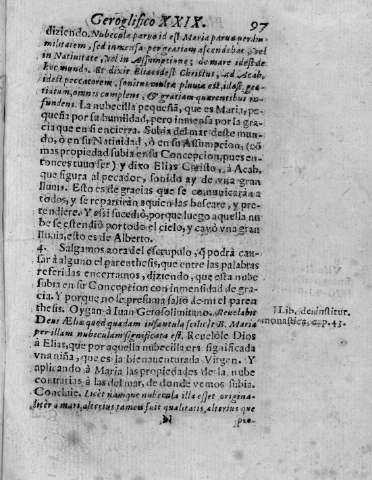 Geroglifico XXIX. 97
diziendo. Nubecula parua id est Maria parua per hu-
militatem, sed inmensa per gratiam ascendebat, vel
in Natiuitate, vel in Assumptione; de mare idest de
hoc mundo. Et dixit Elias idest Christus, ad Acab,
idest peccatorem, sonitus multæ pluuiæ est, idest, gra-
tiarum, omnis complens, & gratiam quærentibus in-
fundens. La nubecilla pequeña, que es Maria, pe-
queña por su humildad, pero inmensa por la gra-
cia que en si encierra. Subia del mar deste mun-
do, ò en su Natiuidad, ò en su Assumpcion, (cõ
mas propiedad subia en su Concepcion, pues en-
tonces tuuo ser) y dixo Elias Christo, à Acab,
que figura al pecador, sonido ay de vna gran
lluuia. Esto es de gracias que se comunicaràn à
todos, y se repartiràn a quien las buscare, y pre-
tendiere. Y assi sucediò, porque luego aquella nu
be se estendiò por todo el cielo, y cayò vna gran
lluuia, esto es de Alberto.
4. Salgamos aora del escrupulo, q̃ podrà cau-
sar à alguno el parenthesis, que entre las palabras
referidas encerramos, diziendo, que esta nube
subia en su Concepcion con inmensidad de gra-
cia. Y porque no se presuma saliò de mi el paren
thesis. Oygan à Iuan Gerosolimitano. Reuelabit
Deus Æliæ quod quadam infantula scilicet B. Maria
per illam nubeculam significata est. Reuelòle Dios
à Elias, que por aquella nubecilla era significada
vna niña, que es la bienauenturada Virgen. Y
aplicando à Maria las propiedades de la nube
contrarias à las del mar, de donde vemos subia.
Concluie. Licèt namque nubecula illa esset origina-
litèr à mari, alterius tamen fuit qualitatis, alterius que
N pro-
Lib. de institut.
monastica, cap. 43.